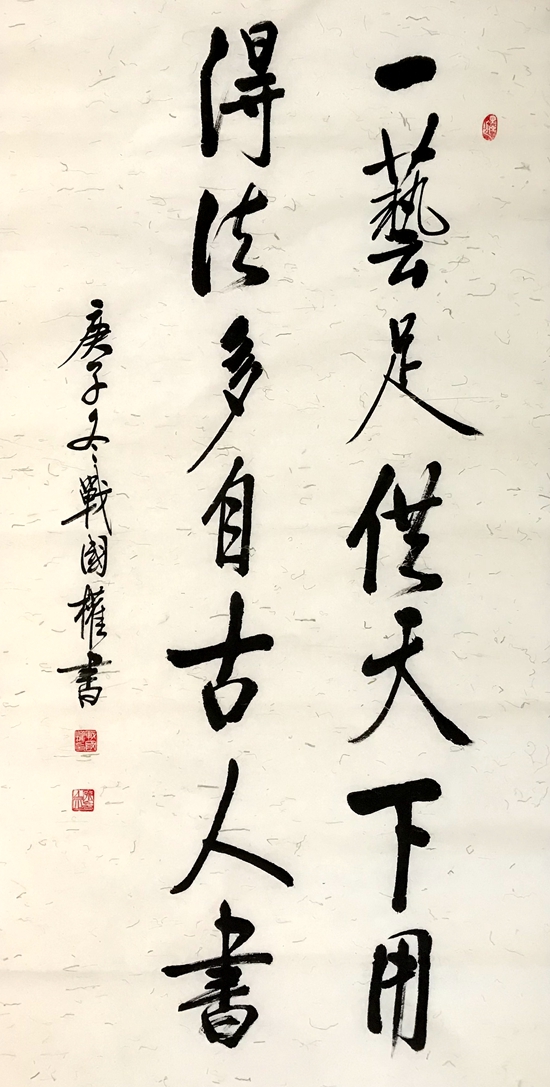 一藝足供天下用
得法多自古人書
庚子冬戰國權書